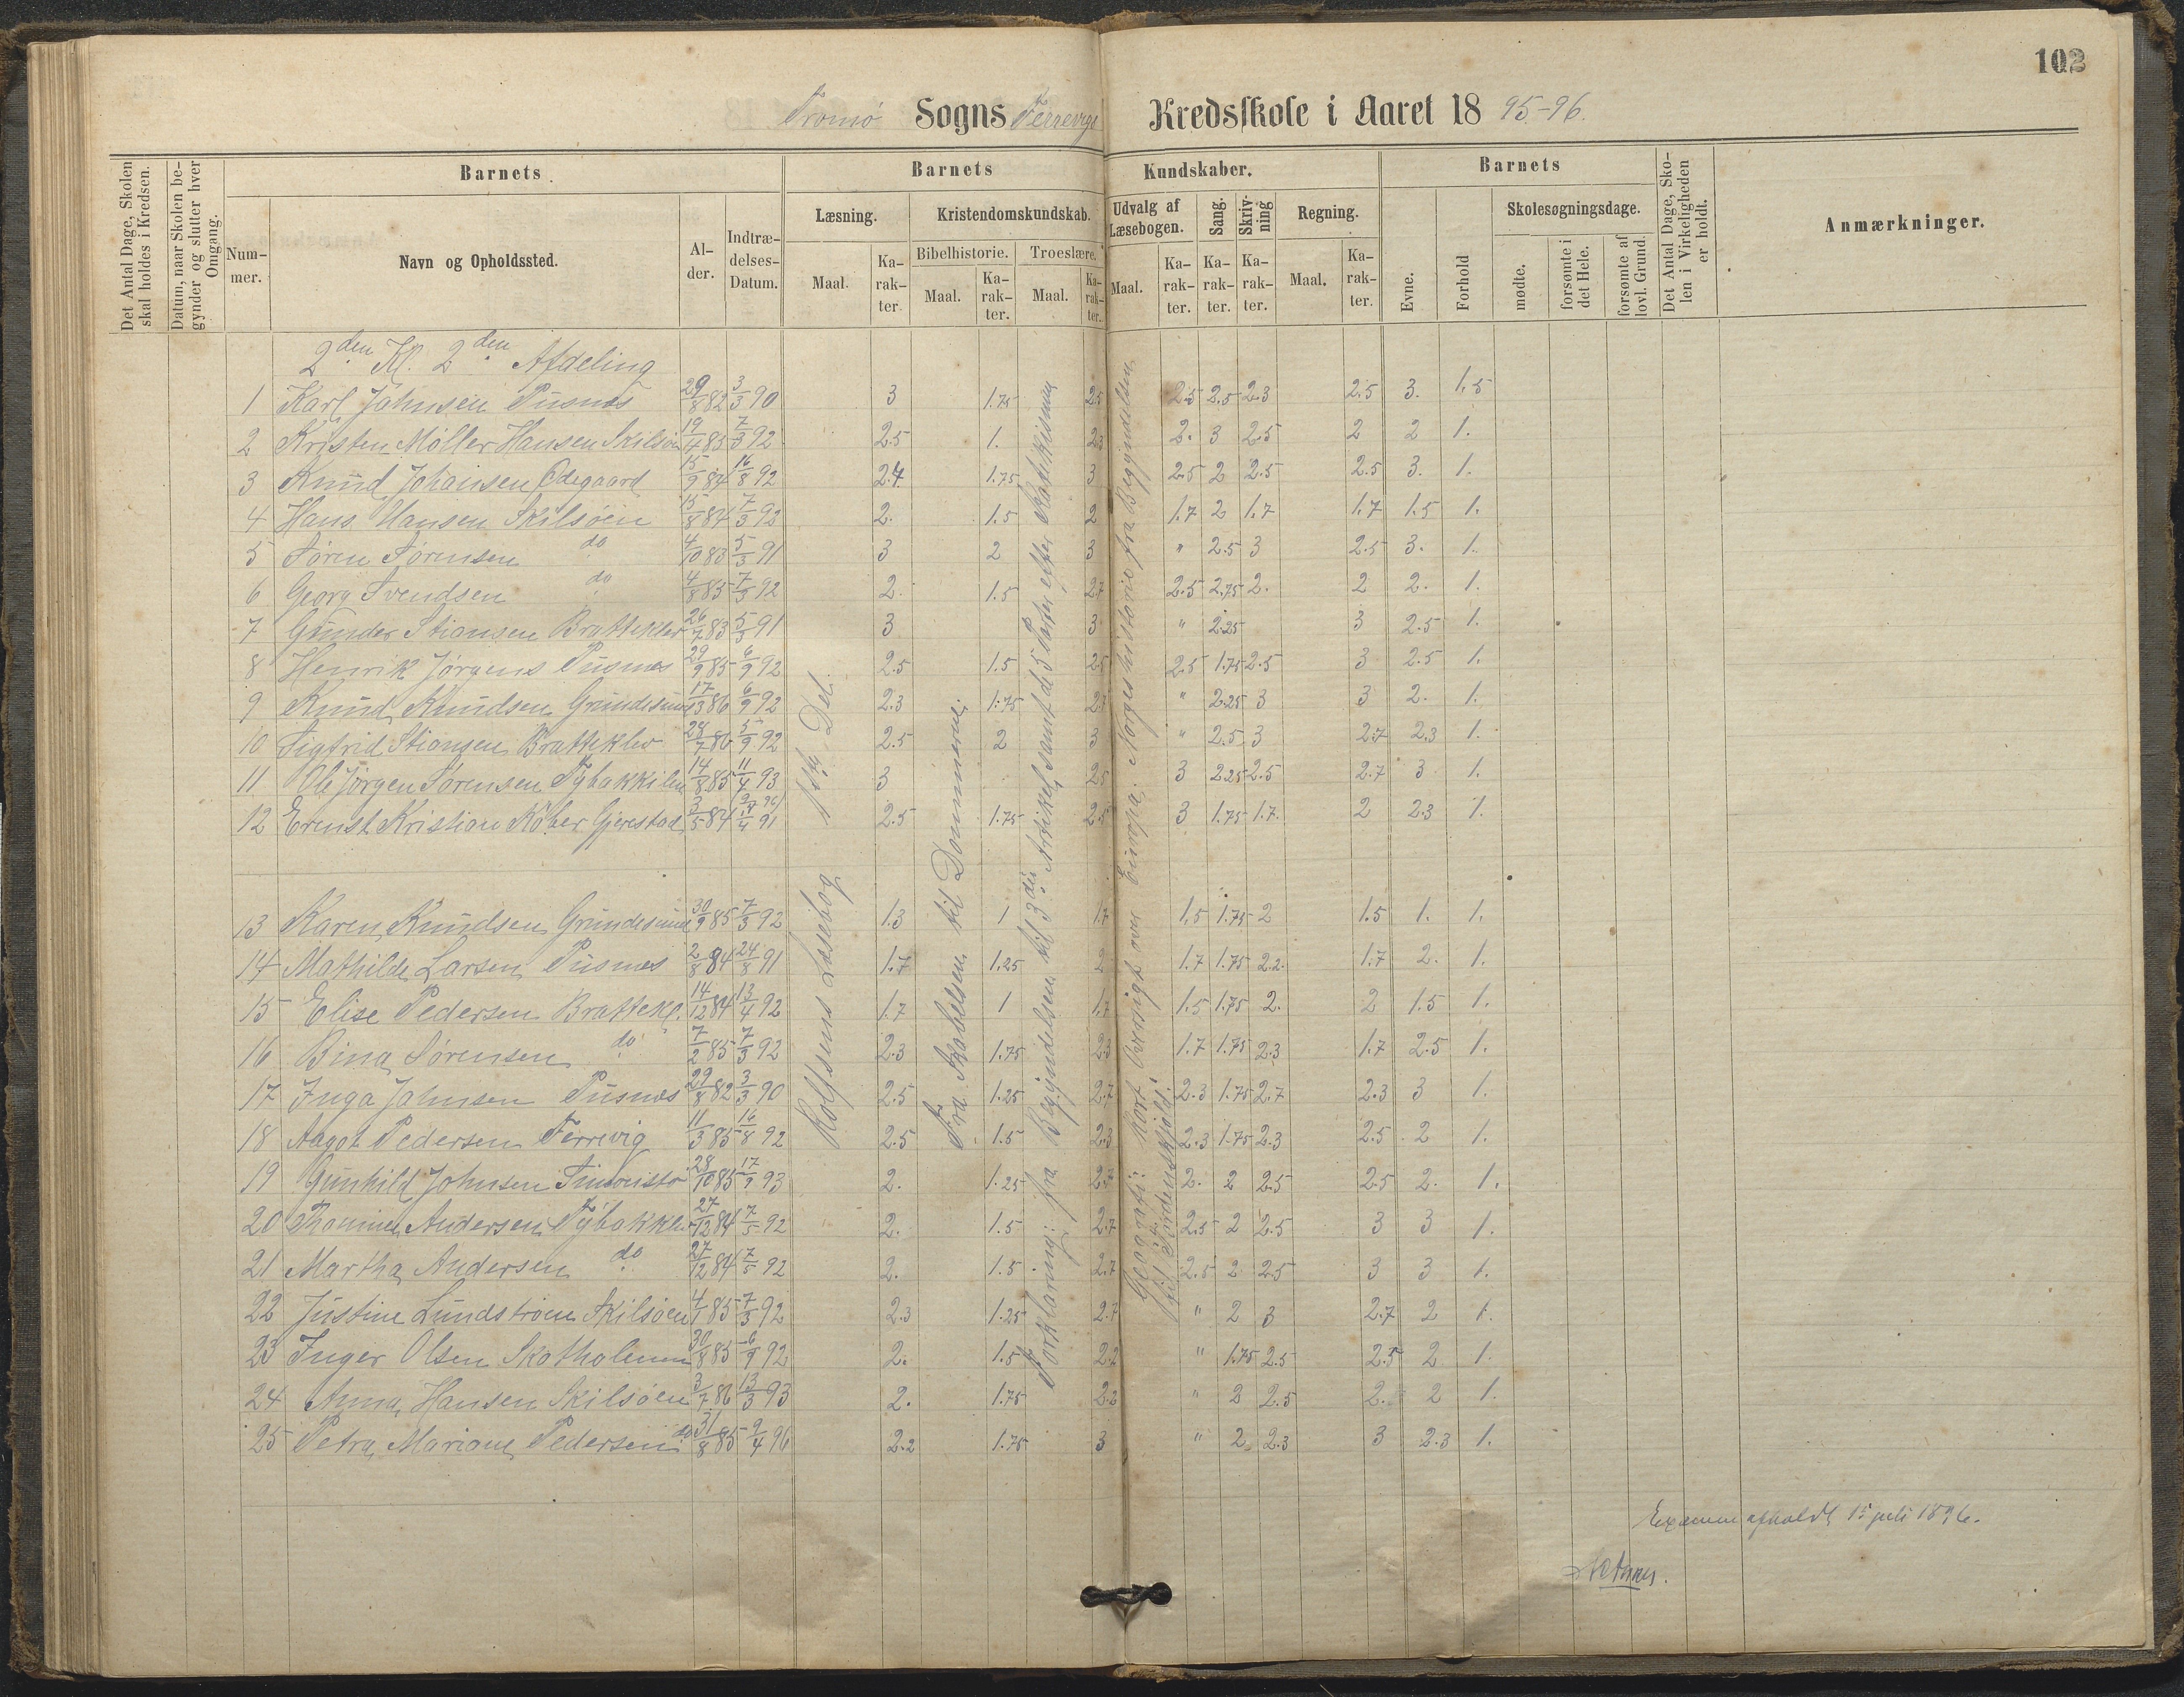 102
Tromø Sogns Færrevigs Kredsskole i Aaret 18 95-96.
Det Antal Dage, Skolen skal holdes i Kredsen.
Datum, naar Skolen begynder og slutter hver Omgang.
Barnets
Nummer.
Navn og Opholdssted.
Alder.
Indtrædelses-Datum.
Barnets Kundskaber.
Læsning.
Maal.
Karakter.
Kristendomskundskab.
Bibelhistorie.
Maal.
Karakter.
Troeslære.
Maal.
Karakter.
Udvalg af Læsebogen.
Maal.
Karakter.
Sang.
Karakter.
Skrivning
Karakter.
Regning.
Maal.
Karakter.
Barnets
Evne.
Forhold
Skolesøgningsdage.
mødte.
forsømte i det Hele.
forsømte af lovl. Grund.
Det Antal Dage, Skolen i Virkeligheden er holdt.
Anmærkninger.
2den Kl. 2den Afdeling
1 Karl Johnsen Pusnes 29/8 82 3/3 90 3 1.75 2.5 2.5 2.5 2.3 2.5 3. 1.5
2 Kristen Møller Hansen Skilsøen 19/4 85 7/3 92 2.5 1. 2.3 2. 3 2.5 2 2 1.
3 Knud Johansen Ødegaard 15/9 84 16/8 92 2.7 1.75 3 2.5 2 2.5 2.5 3. 1.
4 Hans Hansen Skilsøen 15/8 84 7/3 92 2. 1.5 2 1.7 2 1.7 1.7 1.5 1.
5 Søren Sørensen do 4/10 83 5/3 91 3 2 3 " 2.5 3 2.5 3. 1.
6 Georg Svendsen do 4/8 85 7/3 92 2. 1.5 2.7 2.5 2.75 2. 2 2. 1.
7 Gunder Stiansen Bratteklev 26/7 83 5/3 91 3 3 " 2.25 3 2.5 1.
8 Henrik Jørgens Pusnes 29/9 85 6/9 92 2.5 1.5 2.5 2.5 1.75 2.5 3 2.5 1.
9 Knud Knudsen Grundesund 17/3 86 6/9 92 2.3 1.75 2.7 " 2.25 3 3 2. 1.
10 Sigfrid Stiansen Bratteklev 24/7 86 5/9 92 2.5 2 3 " 2.5 3 2.7 2.3 1.
11 Ole Jørgen Sørensen Tybakkilen 14/8 85 11/4 93 3 2.5 3 2.25 2.5 2.7 3 1.
12 Ernst Kristian Køber Gjerestad 3/5 84 4 91 2.5 1.75 2.5 3 1.75 1.7. 2 2.3 1.
13 Karen Knudsen Grundesund 30/9 85 7/3 92 1.3 1 1.7 1.5 1.75 2 1.5 1. 1.
14 Mathilde Larsen Pusnes 2/8 84 24/8 91 1.7 1.25 2 1.7 1.75 2.2. 1.7 2. 1.
15 Elise Pedersen Brattekl. 14/12 84 13/4 92 1.7 1 1.7 1.5 1.75 2. 2 1.5 1.
16 Bina Sørensen do 7/2 85 7/3 92 2.3 1.75 2.3 1.7 1.75 2.3 1.7 2.5 1.
17 Inga Johnsen Pusnes 29/8 82 3/3 90 2.5 1.25 2.7 2.3 1.75 2.7 2.3 3 1.
18 Aagot Pedersen Færrevig 11/3 85 16/8 92 2.5 1.5 2.3 2.3 1.75 2.3 2.5 2 1.
19 Gunhild Johnsen 28/10 85 17/9 93 2. 1.25 2.7 2. 2 2.5 2.5 2. 1.
20 Andersen Tybakkilen 27/12 84 7/5 92 2. 1.5 2.7 2.5 2 2.5 3 3 1.
21 Martha Andersen do 27/12 84 7/5 92 2. 1.5 2.7 2.5 2 2.5 3 3 1.
22 Justine Lundstrøm Skilsøen 4/1 85 7/3 92 2.3 1.25 2.7 " 2 3 2.7 2 1.
23 Inger Olsen Skotholmen 30/8 85 6/9 92 2. 1.5 2.2 " 1.75 2.5 2.5 2 1.
24 Anna Hansen Skilsøen 3/7 86 13/3 93 2. 1.75 2.2 " 2 2.5 2. 2 1.
25 Petra Mariane Pedersen do 31/8 85 9/4 96 2.2 1.75 3 " 2 2.3 3 2.3 1.
Rolfsens Læsebog 1ste Del.
Fra Skabelsen til Dommerne.
Forklaring: fra Begyndelsen til 3die Artikel, samt de 5 Parter efter Katekismus
Geografi: Kort Oversigt over Europa. Norgeshistorie fra Begyndelsen
til Tordenskjold.
Examen afholdt 15 juli 1896.